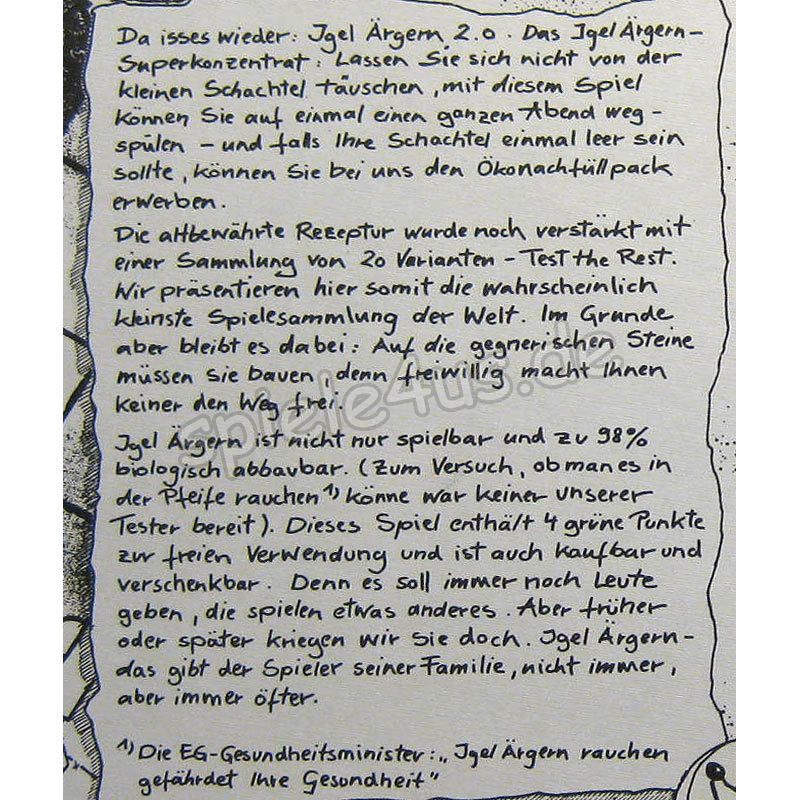 Da isses wieder: Igel Ärgern 2.0. Das Igel Ärgern-
Superkonzentrat: Lassen Sie sich nicht von der
kleinen Schachtel täuschen, mit diesem Spiel
können Sie auf einmal einen ganzen Abend weg-
spülen – und falls Ihre Schachtel einmal leer sein
sollte, können Sie bei uns den Ökonachfüllpack
erwerben.
Die altbewährte Rezeptur wurde noch verstärkt mit
einer Sammlung von 20 Varianten – Test the Rest.
Wir präsentieren hier somit die wahrscheinlich
kleinste Spielesammlung der Welt. Im Grunde
aber bleibt es dabei: Auf die gegnerischen Steine
müssen Sie bauen, denn freiwillig macht Ihnen
keiner den Weg frei.
Igel Ärgern ist nicht nur spielbar und zu 98%
biologisch abbaubar. (Zum Versuch, ob man es in
der Pfeife rauchen 1) könne war keiner unserer
Tester bereit). Dieses Spiel enthält 4 grüne Punkte
zur freien Verwendung und ist auch kaufbar und
verschenkbar. Denn es soll immer noch Leute
geben, die spielen etwas anderes. Aber früher
oder später kriegen wir sie doch. Igel Ärgern –
das gibt der Spieler seiner Familie, nicht immer,
aber immer öfter.
1) Die EG-Gesundheitsminister: „Igel Ärgern rauchen
gefährdet Ihre Gesundheit"
spiele4us.de